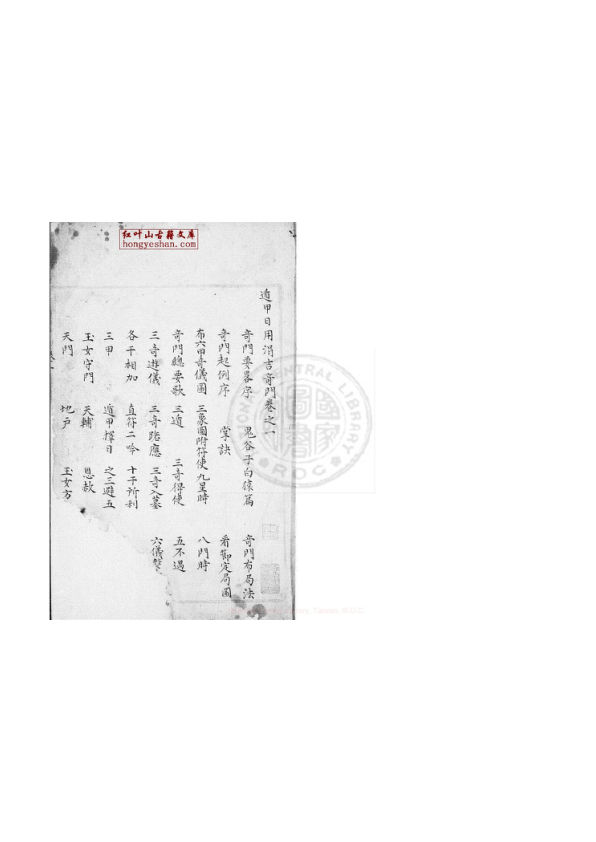 红叶山古籍文库
hongyeshan.com
遁甲日用涓吉奇門卷之一
奇門要畧序 鬼谷子白猿篇 奇門布局法
奇門起例序 掌訣 看鄿定局圖
布六甲奇儀圖 三象圖附符使九星時 八門時
奇門總要歌 三道 三奇得使 五不遇
三奇遊儀 三奇路應 三奇入墓 六儀擊
各干相加 直符二吟 十干所利
三甲 遁甲擇日 之三避五
玉女守門 天輔 恩赦
天門 地户 玉女方
CENTRAL LIBRARY
R.O.C.
國家圖書館